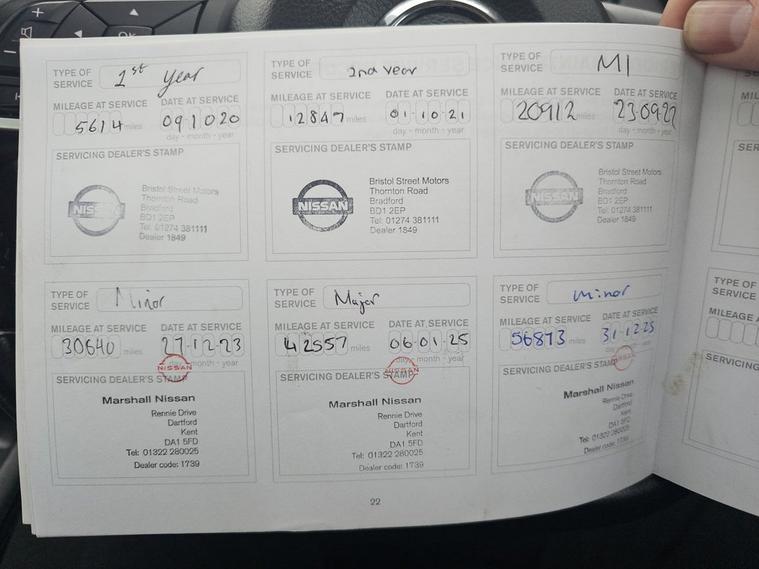 TYPE OF SERVICE 1st Year
MILEAGE AT SERVICE DATE AT SERVICE
5614 miles 09 10 20
day - month - year
SERVICING DEALER'S STAMP
NISSAN
Bristol Street Motors
Thornton Road
Bradford
BD1 2EP
Tel: 01274 381111
Dealer 1849
TYPE OF SERVICE 2nd year
MILEAGE AT SERVICE DATE AT SERVICE
12847 miles 01-10-21
day - month - year
SERVICING DEALER'S STAMP
NISSAN
Bristol Street Motors
Thornton Road
Bradford
BD1 2EP
Tel: 01274 381111
Dealer 1849
TYPE OF SERVICE M1
MILEAGE AT SERVICE DATE AT SERVICE
20912 miles 23-09-22
day - month - year
SERVICING DEALER'S STAMP
NISSAN
Bristol Street Motors
Thornton Road
Bradford
BD1 2EP
Tel: 01274 381111
Dealer 1849
TYPE OF SERVICE Minor
MILEAGE AT SERVICE DATE AT SERVICE
30640 miles 27-12-23
day - month - year
NISSAN
SERVICING DEALER'S STAMP
Marshall Nissan
Rennie Drive
Dartford
Kent
DA1 5FD
Tel: 01322 280025
Dealer code: 1739
TYPE OF SERVICE Major
MILEAGE AT SERVICE DATE AT SERVICE
42557 miles 06-01-25
day - month - year
NISSAN
SERVICING DEALER'S STAMP
Marshall Nissan
Rennie Drive
Dartford
Kent
DA1 5FD
Tel: 01322 280025
Dealer code: 1739
TYPE OF SERVICE minor
MILEAGE AT SERVICE DATE AT SERVICE
56873 miles 31-12-25
NISSAN
SERVICING DEALER'S STAMP
Marshall Nissan
Rennie Drive
Dartford
Kent
DA1 5FD
Tel: 01322 280025
Dealer code: 1739
22